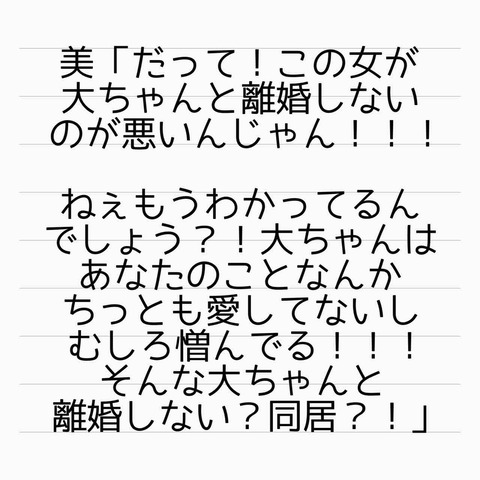 美「だって！この女が
大ちゃんと離婚しない
のが悪いんじゃん！！！
ねぇもうわかってるん
でしょう？！大ちゃんは
あなたのことなんか
ちっとも愛してないし
むしろ憎んでる！！！
そんな大ちゃんと
離婚しない？同居？！」